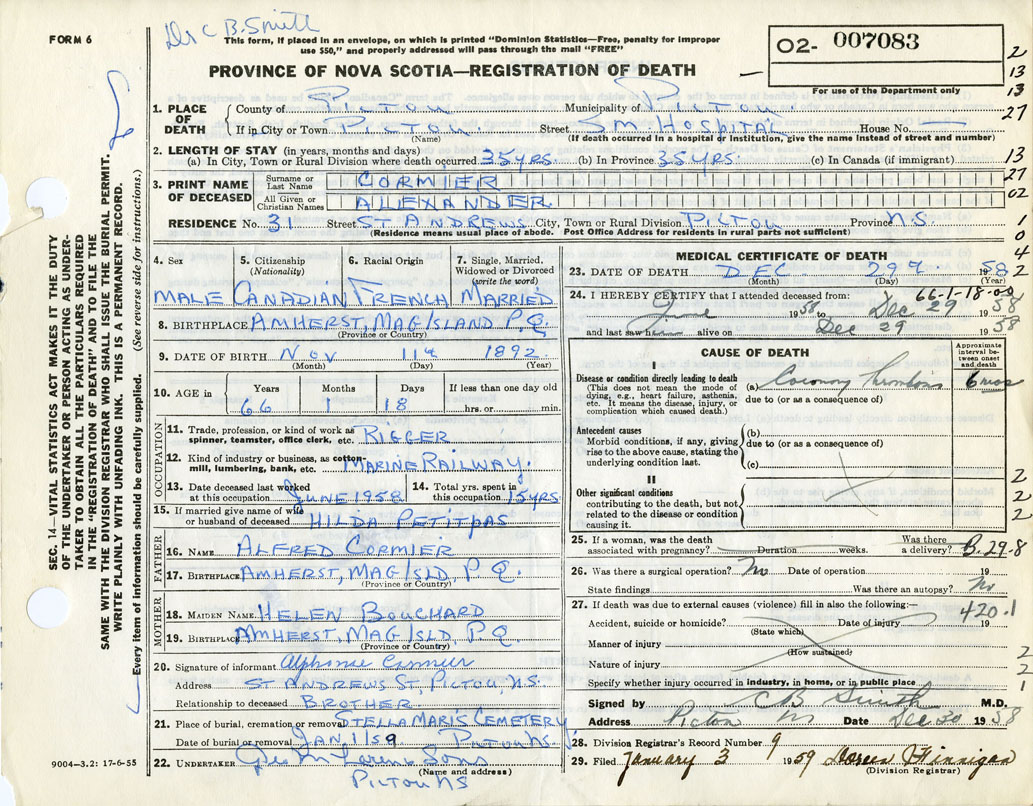 Drs C B. Smith
FORM 6
This form, if placed in an envelope, on which is printed "Dominion Statistics—Free, penalty for improper
use $50," and properly addressed will pass through the mail "FREE"
O2- 007083
For use of the Department only
PROVINCE OF NOVA SCOTIA—REGISTRATION OF DEATH
1. PLACE OF DEATH County of PICTOU Municipality of PICTOU
If in City or Town PICTOU Street SM HOSPITAL House No.
(Name) (If death occurred in a hospital or institution, give the name instead of street and number)
2. LENGTH OF STAY (in years, months and days)
(a) In City, Town or Rural Division where death occurred 35 YRS. (b) In Province 35 YRS. (c) In Canada (if immigrant)
3. PRINT NAME OF DECEASED
Surname or Last Name CORMIER
All Given or Christian Names ALEXANDER
RESIDENCE No. 31 Street ST ANDREWS City, Town or Rural Division PICTOU Province N.S.
(Residence means usual place of abode. Post Office Address for residents in rural parts not sufficient)
4. Sex
MALE
5. Citizenship
(Nationality)
CANADIAN
6. Racial Origin
FRENCH
7. Single, Married, Widowed or Divorced
(write the word)
MARRIED
8. BIRTHPLACE AMHERST, MAG/ISLAND P.Q.
(Province or Country)
9. DATE OF BIRTH NOV 11th 1892
(Month) (Day) (Year)
10. AGE in Years Months Days If less than one day old
66 1 18 hrs. or min.
OCCUPATION
11. Trade, profession, or kind of work as
spinner, teamster, office clerk, etc. RIGGER
12. Kind of industry or business, as cotton-
mill, lumbering, bank, etc. MARINE RAILWAY.
13. Date deceased last worked
at this occupation JUNE 1958
14. Total yrs. spent in
this occupation 15 YRS
15. If married give name of wife
or husband of deceased HILDA PETITPAS
FATHER
16. NAME ALFRED CORMIER
17. BIRTHPLACE AMHERST, MAG/ISLD P.Q.
(Province or Country)
MOTHER
18. MAIDEN NAME HELEN BOUCHARD
19. BIRTHPLACE AMHERST, MAG/ISLD, P.Q.
(Province or Country)
20. Signature of informant Alphonse Cormier
Address ST ANDREWS ST, PICTOU, N.S.
Relationship to deceased BROTHER
21. Place of burial, cremation or removal STELLA MARIS CEMETERY
Date of burial or removal JAN 1/59 PICTOU N.S
22. UNDERTAKER Sons
(Name and address)
PICTOU NS
9004-3.2: 17-6-55
MEDICAL CERTIFICATE OF DEATH
23. DATE OF DEATH DEC 29th 1958
(Month) (Day) (Year)
66-1-18-00
24. I HEREBY CERTIFY that I attended deceased from:
June 1958 to Dec 29 1958
and last saw him alive on Dec 29 1958
CAUSE OF DEATH
Approximate interval between onset and death
I
Disease or condition directly leading to death
(This does not mean the mode of
dying, e.g., heart failure, asthenia,
etc. It means the disease, injury, or
complication which caused death.)
(a) Coronary Thrombosis 6 mos
due to (or as a consequence of)
Antecedent causes
Morbid conditions, if any, giving
rise to the above cause, stating the
underlying condition last.
(b)
due to (or as a consequence of)
(c)
II
Other significant conditions
contributing to the death, but not
related to the disease or condition
causing it.
25. If a woman, was the death Was there
associated with pregnancy? Duration weeks. a delivery? B.29-8
26. Was there a surgical operation? No Date of operation 19
State findings Was there an autopsy? No
27. If death was due to external causes (violence) fill in also the following:—
420.1
Accident, suicide or homicide? Date of injury 19
(State which)
Manner of injury
(How sustained)
Nature of injury
Specify whether injury occurred in industry, in home, or in public place
Signed by CB Smith M.D.
Address Pictou NS Date Dec 30 1958
28. Division Registrar's Record Number 9
29. Filed January 3 1959 Finnigan
(Division Registrar)
2
13
13
27
13
27
02
1
0
4
2
2
2
2
2
2
1
SEC. 14—VITAL STATISTICS ACT MAKES IT THE DUTY
OF THE UNDERTAKER OR PERSON ACTING AS UNDER-
TAKER TO OBTAIN ALL THE PARTICULARS REQUIRED
IN THE "REGISTRATION OF DEATH" AND TO FILE THE
SAME WITH THE DIVISION REGISTRAR WHO SHALL ISSUE THE BURIAL PERMIT.
WRITE PLAINLY WITH UNFADING INK. THIS IS A PERMANENT RECORD.
Every item of information should be carefully supplied. (See reverse side for instructions.)